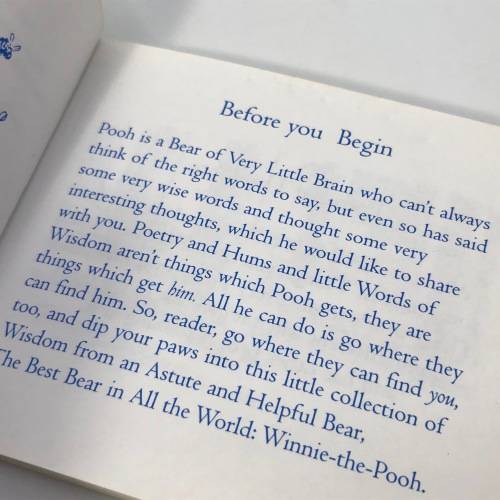 Before you Begin
Pooh is a Bear of Very Little Brain who can't always
think of the right words to say, but even so has said
some very wise words and thought some very
interesting thoughts, which he would like to share
with you. Poetry and Hums and little Words of
Wisdom aren't things which Pooh gets, they are
things which get him. All he can do is go where they
can find him. So, reader, go where they can find you,
too, and dip your paws into this little collection of
Wisdom from an Astute and Helpful Bear,
The Best Bear in All the World: Winnie-the-Pooh.